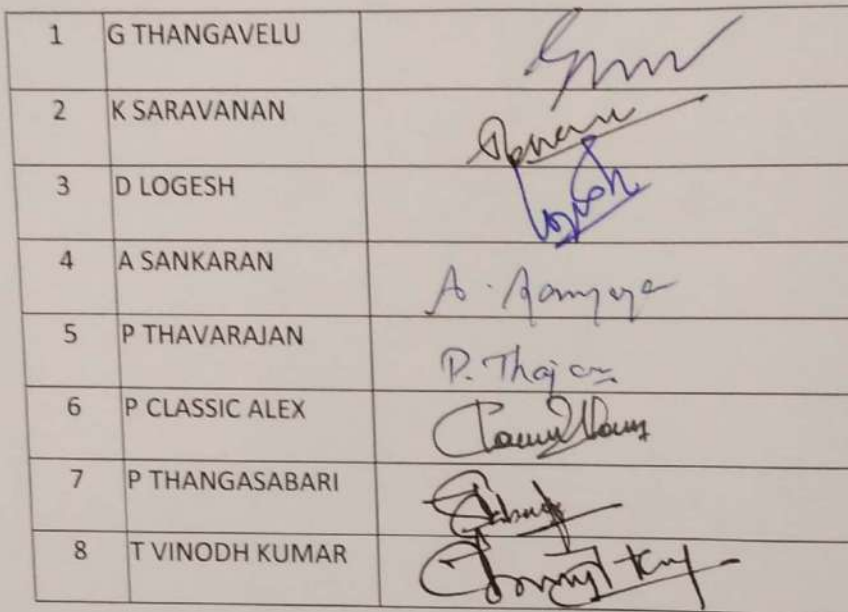 1 G THANGAVELU
2 K SARAVANAN
3 D LOGESH
4 A SANKARAN
5 P THAVARAJAN P. Thajan
6 P CLASSIC ALEX
7 P THANGASABARI
8 T VINODH KUMAR